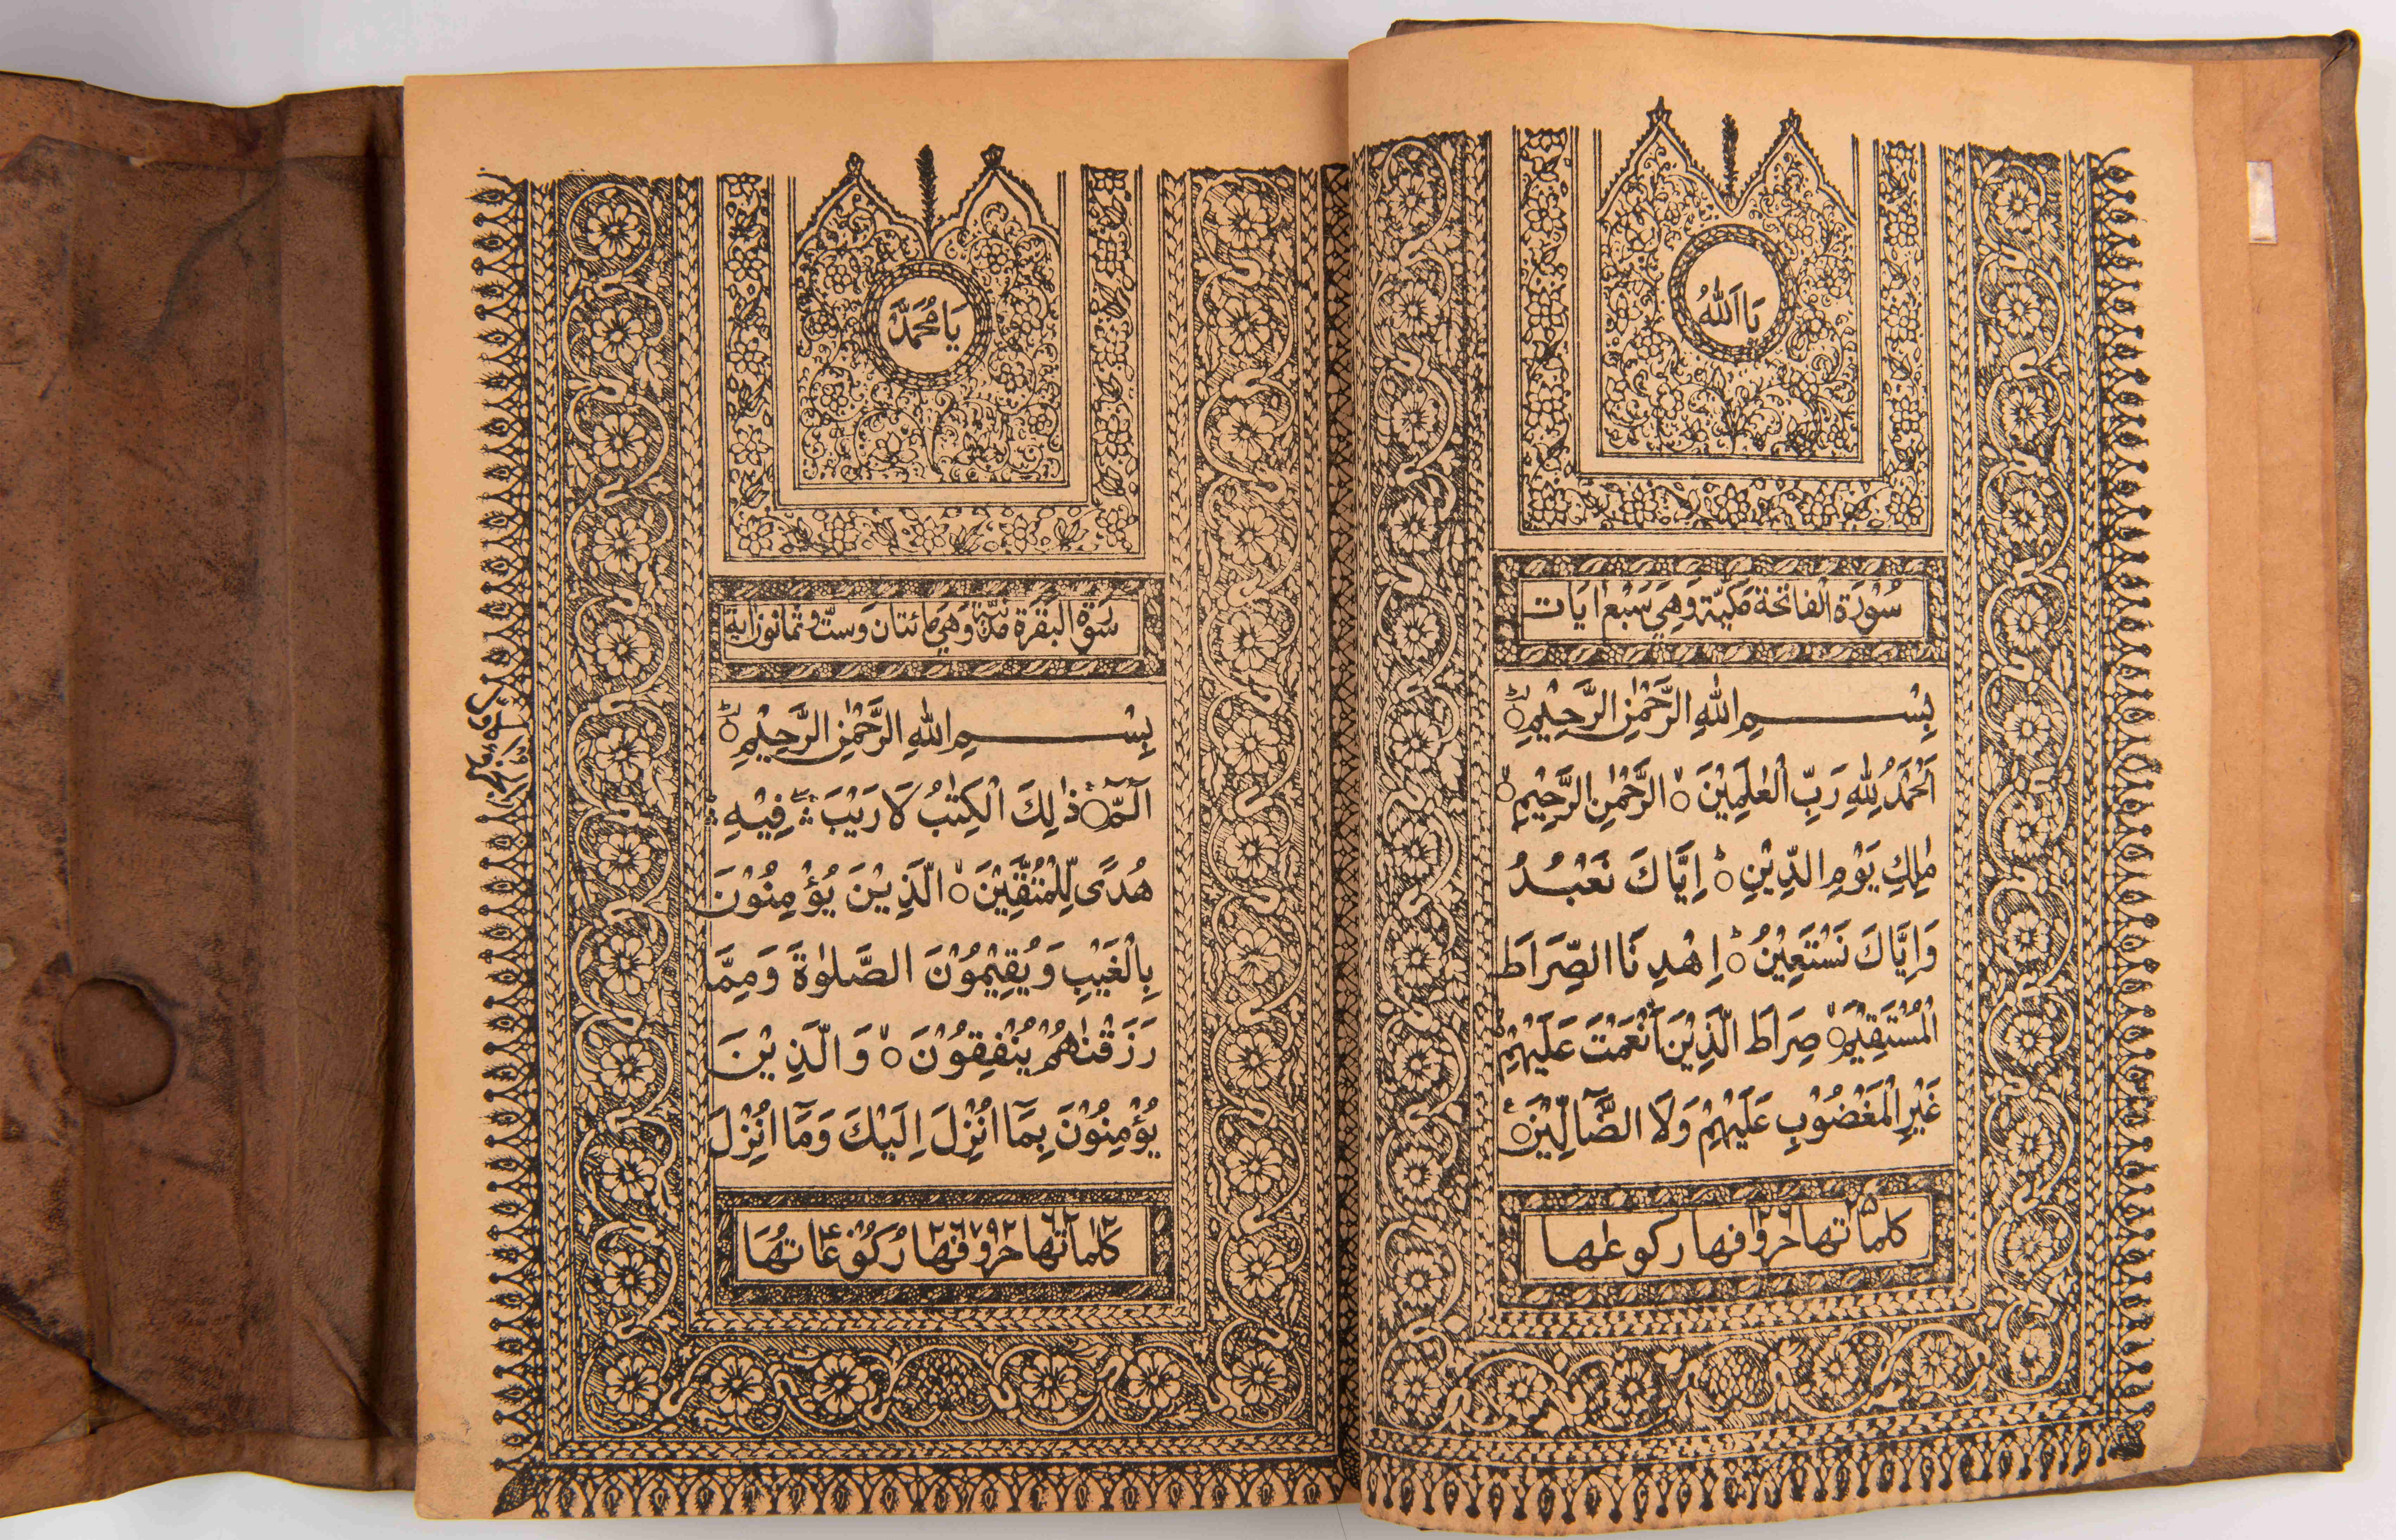 يَا اَللّٰهُ
سُوْرَةُ الْفَاتِحَةِ مَكِّيَّةٌ وَهِيَ سَبْعُ اٰيَات
بِسْــــــــمِ اللّٰهِ الرَّحْمٰنِ الرَّحِيْمِ ○
اَلْحَمْدُ لِلّٰهِ رَبِّ الْعٰلَمِيْنَ ○ الرَّحْمٰنِ الرَّحِيْمِ ○
مٰلِكِ يَوْمِ الدِّيْنِ ○ اِيَّاكَ نَعْبُدُ
وَاِيَّاكَ نَسْتَعِيْنُ ○ اِهْدِنَا الصِّرَاطَ
الْمُسْتَقِيْمَ ○ صِرَاطَ الَّذِيْنَ اَنْعَمْتَ عَلَيْهِمْ
غَيْرِ الْمَغْضُوْبِ عَلَيْهِمْ وَلَا الضَّآلِّيْنَ ○
كلماتها ٢٥ حروفها ١٢٦ ركوعها ١
يَا مُحَمَّدُ
سُوْرَةُ الْبَقَرَةِ مَدَنِيَّةٌ وَهِيَ مائتان وَستّ وثمانون اٰية
بِسْــــــــمِ اللّٰهِ الرَّحْمٰنِ الرَّحِيْمِ ○
الٓمّٓ ○ ذٰلِكَ الْكِتٰبُ لَا رَيْبَ ۛ فِيْهِ ۛ
هُدًى لِّلْمُتَّقِيْنَ ○ الَّذِيْنَ يُؤْمِنُوْنَ
بِالْغَيْبِ وَيُقِيْمُوْنَ الصَّلٰوةَ وَمِمَّا
رَزَقْنٰهُمْ يُنْفِقُوْنَ ○ وَالَّذِيْنَ
يُؤْمِنُوْنَ بِمَآ اُنْزِلَ اِلَيْكَ وَمَآ اُنْزِلَ
كلماتها حروفها ركوعاتها